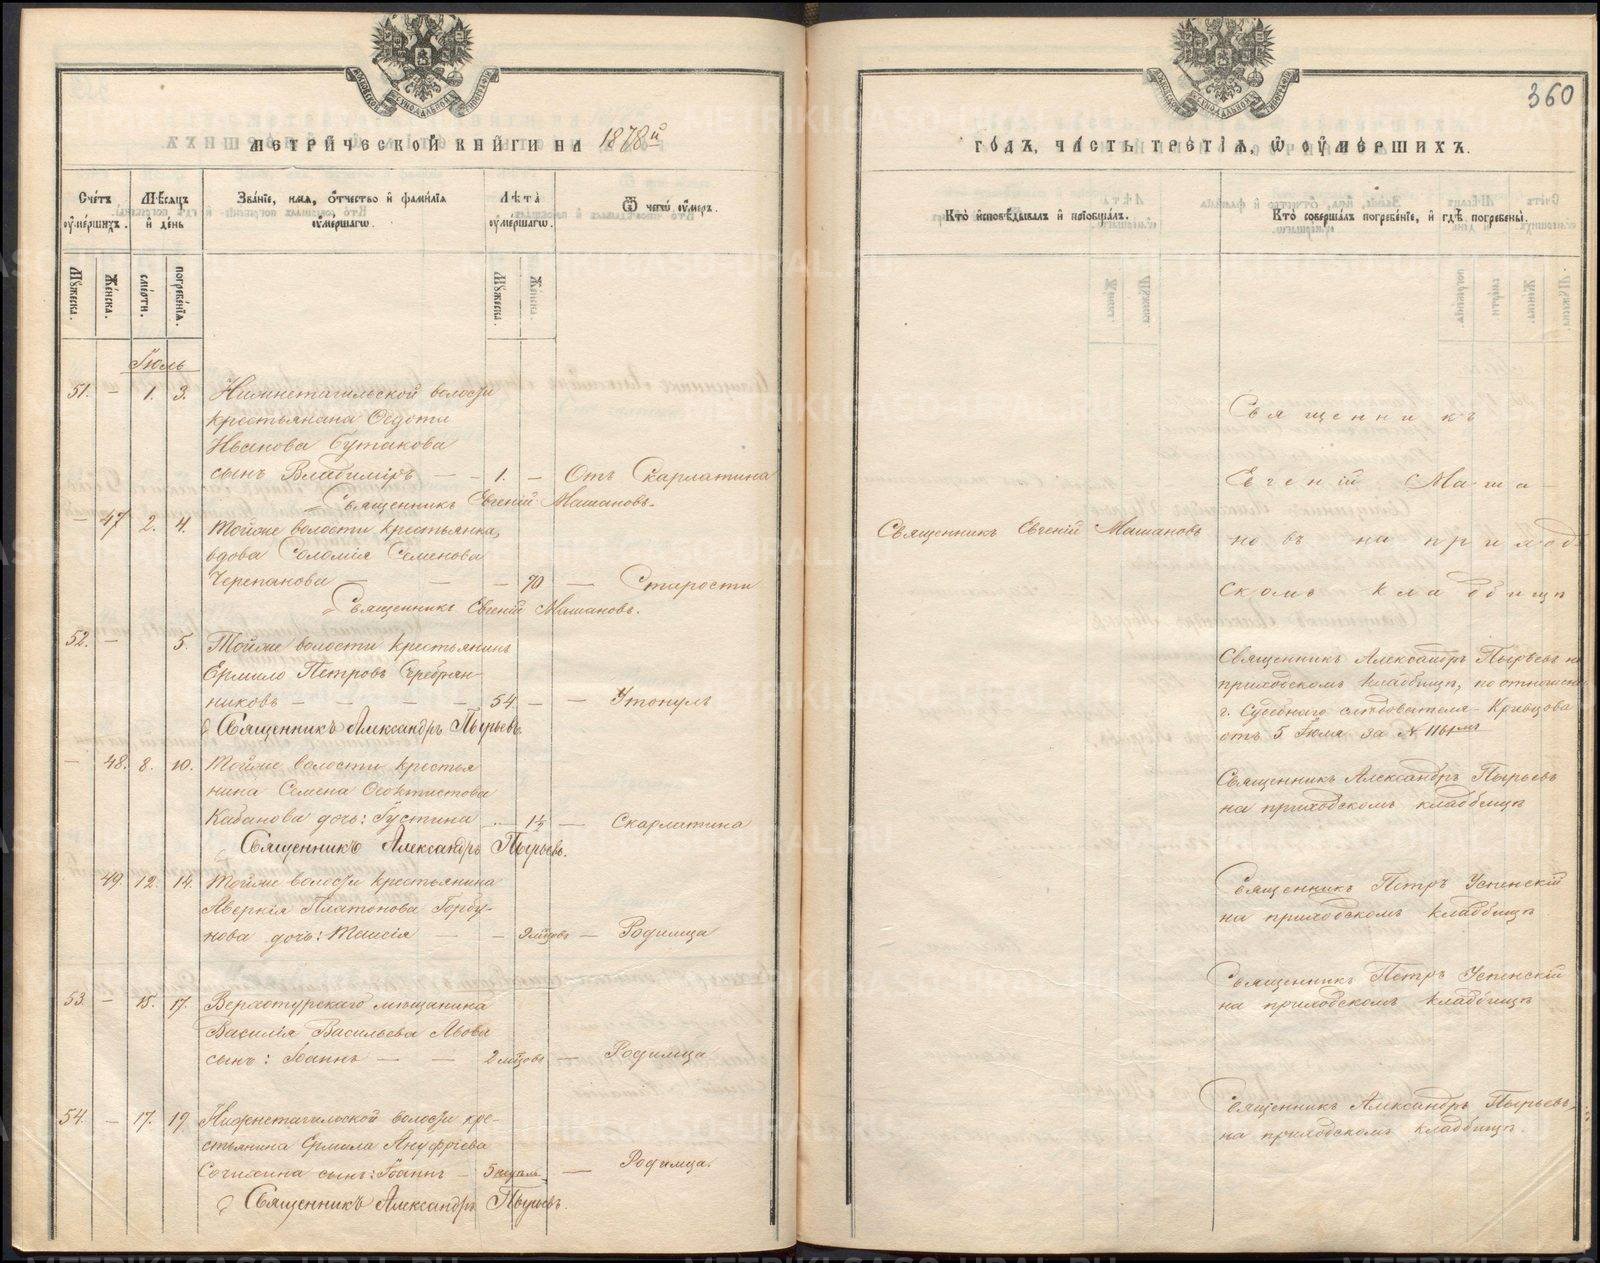 МЕТРИЧЕСКОЙ КНИГИ НА 1878й
ГОДЪ, ЧАСТЬ ТРЕТІЯ, Ѡ ОУМЕРШИХЪ.
360
Счетъ оумершихъ.
Мѣсяцъ и день
Званіе, имя, отчество и фамилія оумершагѡ.
Лѣта оумершагѡ.
Ѿ чегѡ оумеръ.
Кто исповѣдывалъ и пріобщалъ.
Кто совершалъ погребеніе, и гдѣ погребены.
Мужеска.
Женска.
смерти.
погребенія.
Мужеска.
Женска.
Іюль
51. — 1. 3. Нижнетагильской волости
крестьянина Ѳедота
Иванова Бутакова
сынъ Владиміръ — 1. — Отъ Скарлатина
Священникъ Евгеній Машановъ.
Священникъ
Евгеній Маша-
новъ на приход-
скомъ кладбищѣ
— 47 2. 4. Тойже волости крестьянка,
вдова Соломія Семенова
Черепанова — — — 70 — Старости
Священникъ Евгеній Машановъ.
Священникъ Евгеній Машановъ
52. — 5. Тойже волости крестьянинъ
Ермило Петровъ Серебрян-
никовъ — — — — 54. — — Утонулъ
Священникъ Александръ Пырьевъ.
Священникъ Александръ Пырьевъ на
приходскомъ кладбищѣ, по отношенію
г. Судебнаго слѣдователя Кривцова
отъ 5 Іюля за №
— 48. 8. 10. Тойже волости крестья
нина Семена Ѳеоктистова
Кабанова дочь: Густина — 1½ — Скарлатина
Священникъ Александръ Пырьевъ.
Священникъ Александръ Пырьевъ
на приходскомъ кладбищѣ
49. 12. 14. Тойже волости крестьянина
Аверкія Платонова Горбу-
нова дочь: Таисія — — 9 мѣсцовъ — Родимца
Священникъ Петръ Успенскій
на приходскомъ кладбищѣ
53. — 15. 17. Верхотурскаго мѣщанина
Василія Васильева Львова
сынъ: Іоаннъ — — 2 мѣсцовъ — Родимца
Священникъ Петръ Успенскій
на приходскомъ кладбищѣ
54. — 17. 19 Нижнетагильской волости кре-
стьянина Ермила Ануфріева
сынъ: Іоаннъ — 5 недѣль — Родимца.
Священникъ Александръ Пырьевъ.
Священникъ Александръ Пырьевъ,
на приходскомъ кладбищѣ.